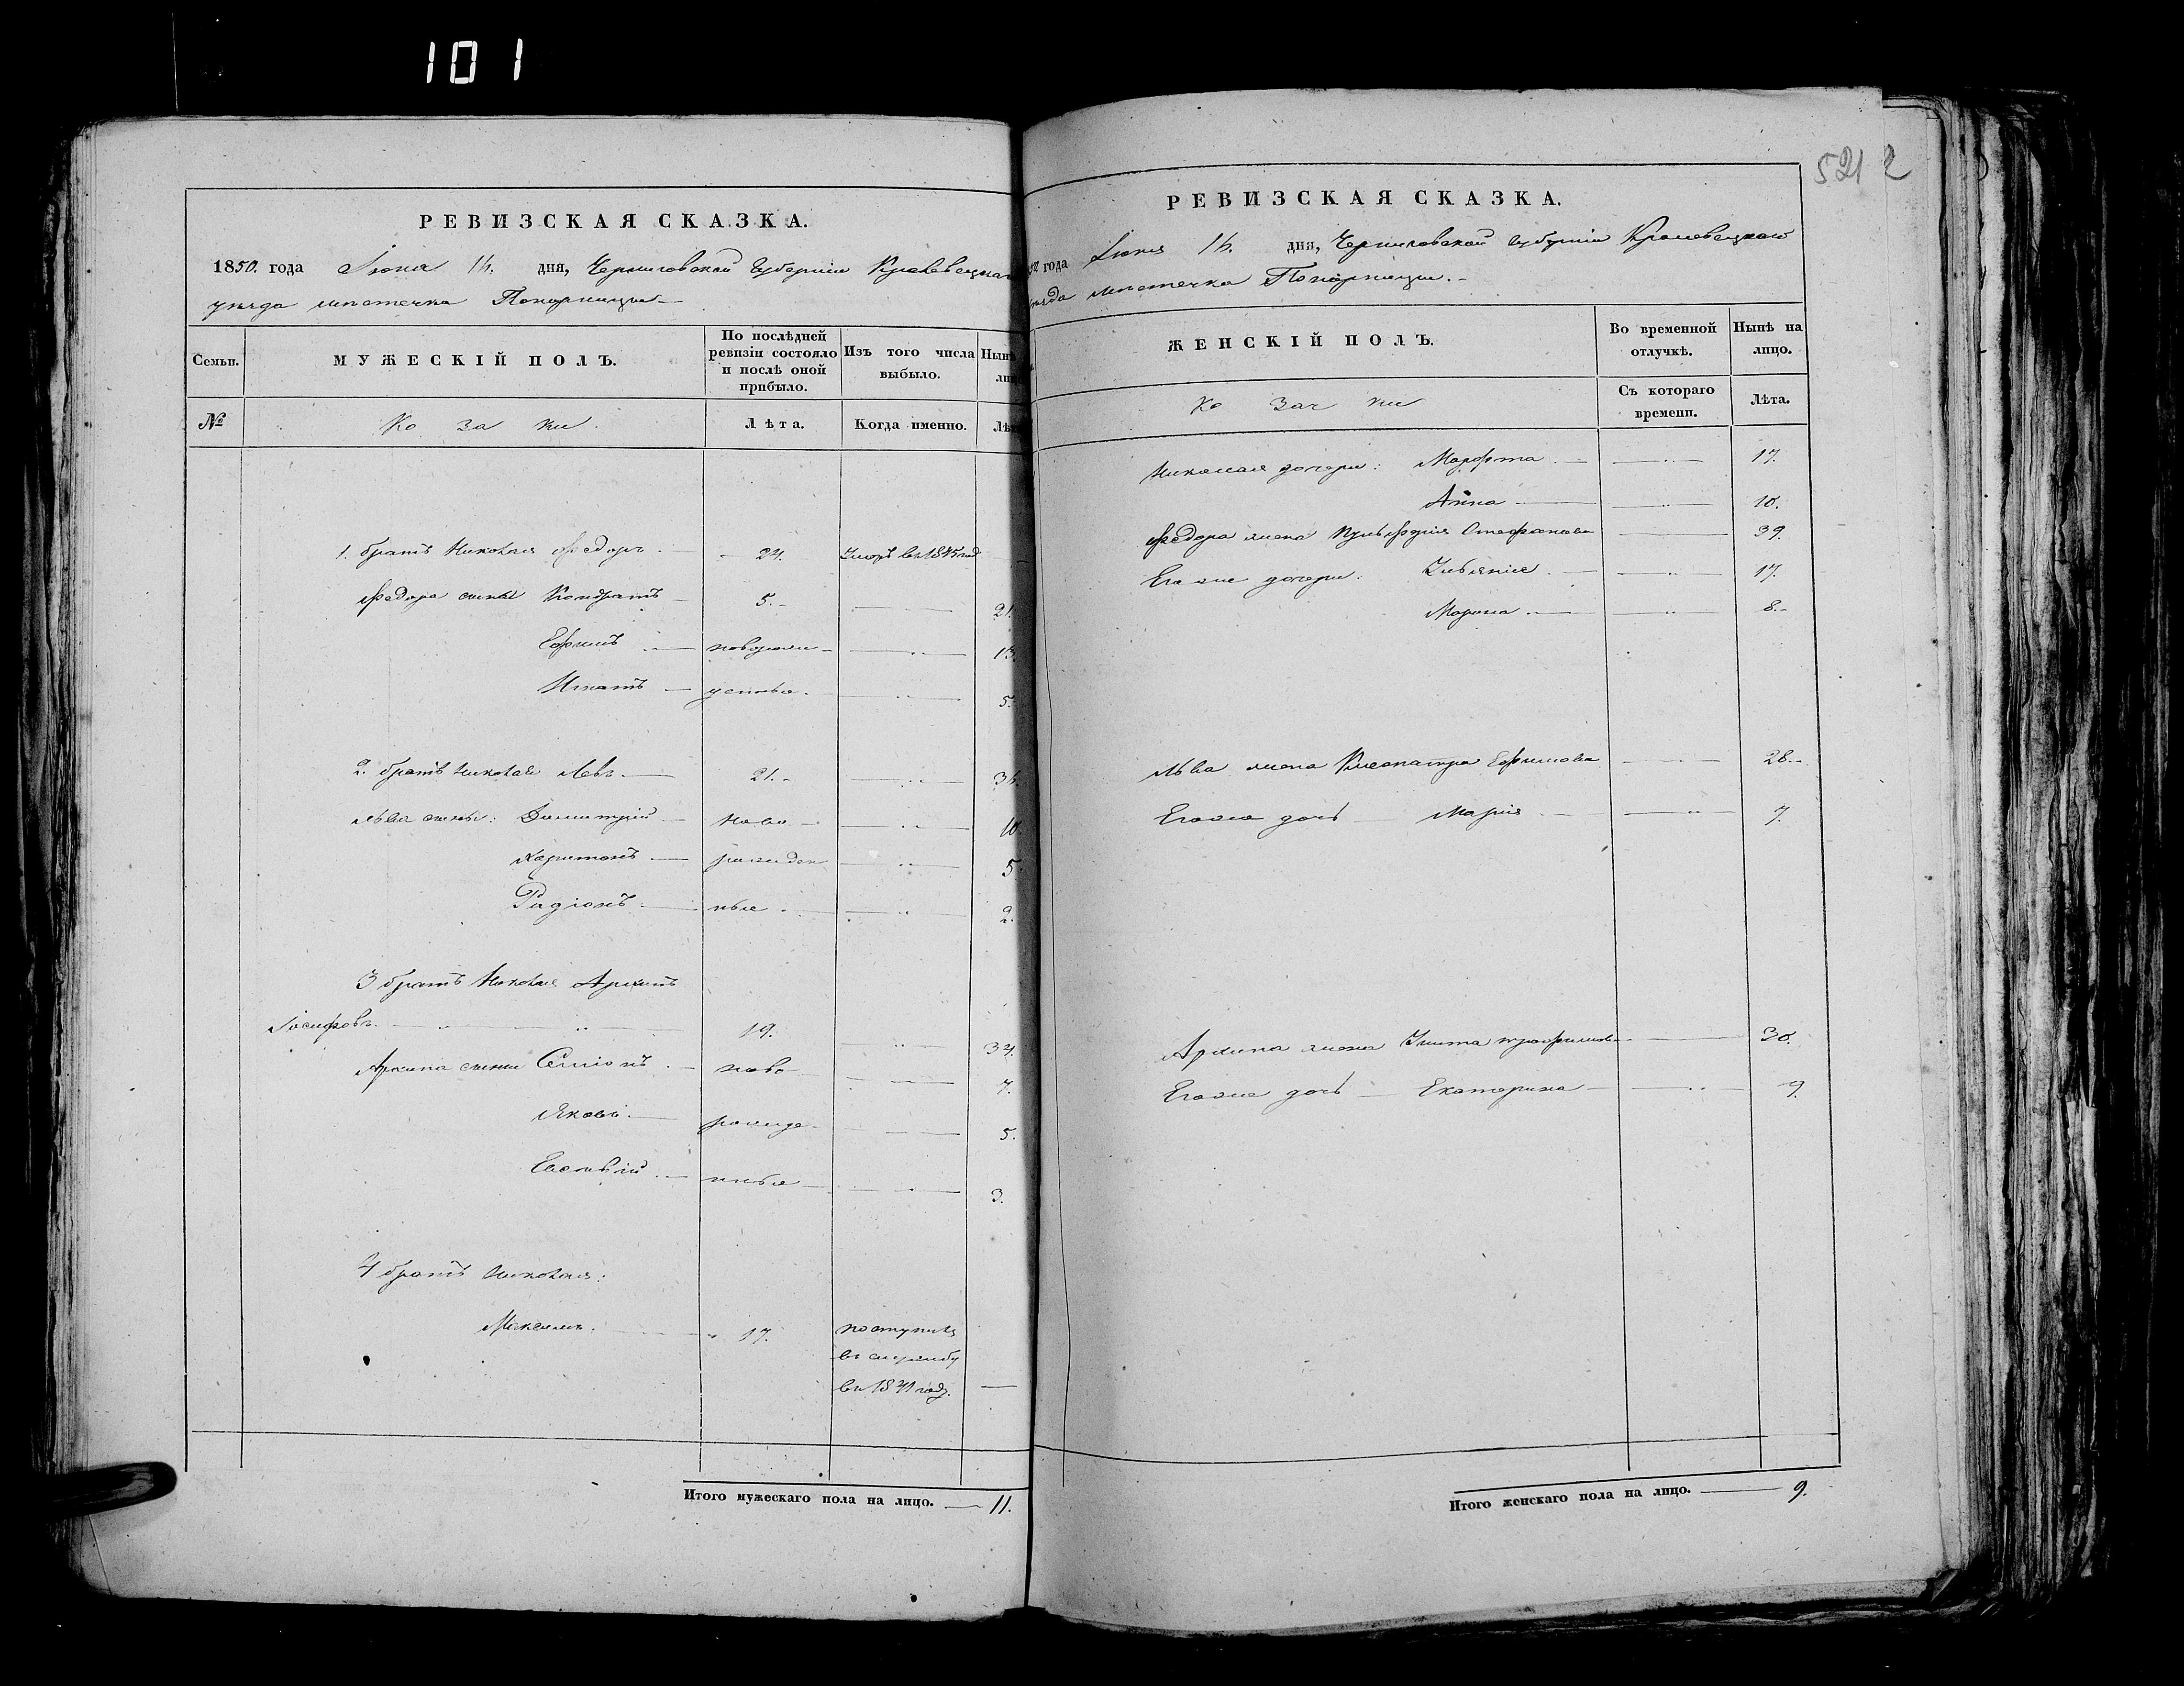 101
РЕВИЗСКАЯ СКАЗКА.
1850. года Іюня 16. дня, Черниговской Губерніи Кролевецкаго
уѣзда мѣстечка Понорницы
Семьи. МУЖЕСКІЙ ПОЛЪ. По послѣдней ревизіи состояло и послѣ оной прибыло. Изъ того числа выбыло. Нынѣ
№ Козаки. Лѣта. Когда именно.
1. братъ Николая Федоръ 24. Умеръ въ 1845 год
Федора сыны Кондратъ 5. 21.
Ефимъ новорож 13.
Игнатъ денные. 5.
2. братъ Николая Левъ 21. 36.
Льва сыны: Димитрій ново 10.
Харитонъ рожден 5
Радіонъ ные 2.
3 братъ Николая Архипъ
Іосифовъ 19. 34.
Архипа сыны Семіонъ ново 7.
Яковъ рожде 5.
Евстафій нные 3.
4 братъ Николая:
Максимъ. 17. поступилъ
въ службу
въ 1841 году.
Итого мужескаго пола на лицо. 11.
521 2
РЕВИЗСКАЯ СКАЗКА.
года Іюня 16. дня, Черниговской Губерніи Кролевецкаго
уѣзда мѣстечка Понорницы.
ЖЕНСКІЙ ПОЛЪ. Во временной отлучкѣ. Нынѣ на лицо.
Козачки Съ котораго времени. Лѣта.
Николая дочери: Марфа 17.
Анна 10.
Федора жена Стефанова 39.
Его же дочери: 17.
Марина 8.
Льва жена Клеопатра Ефимова 28.
Его же дочь Марія 7.
Архипа жена Трофимова 30.
Его же дочь Екатерина 9.
Итого женскаго пола на лицо. 9.